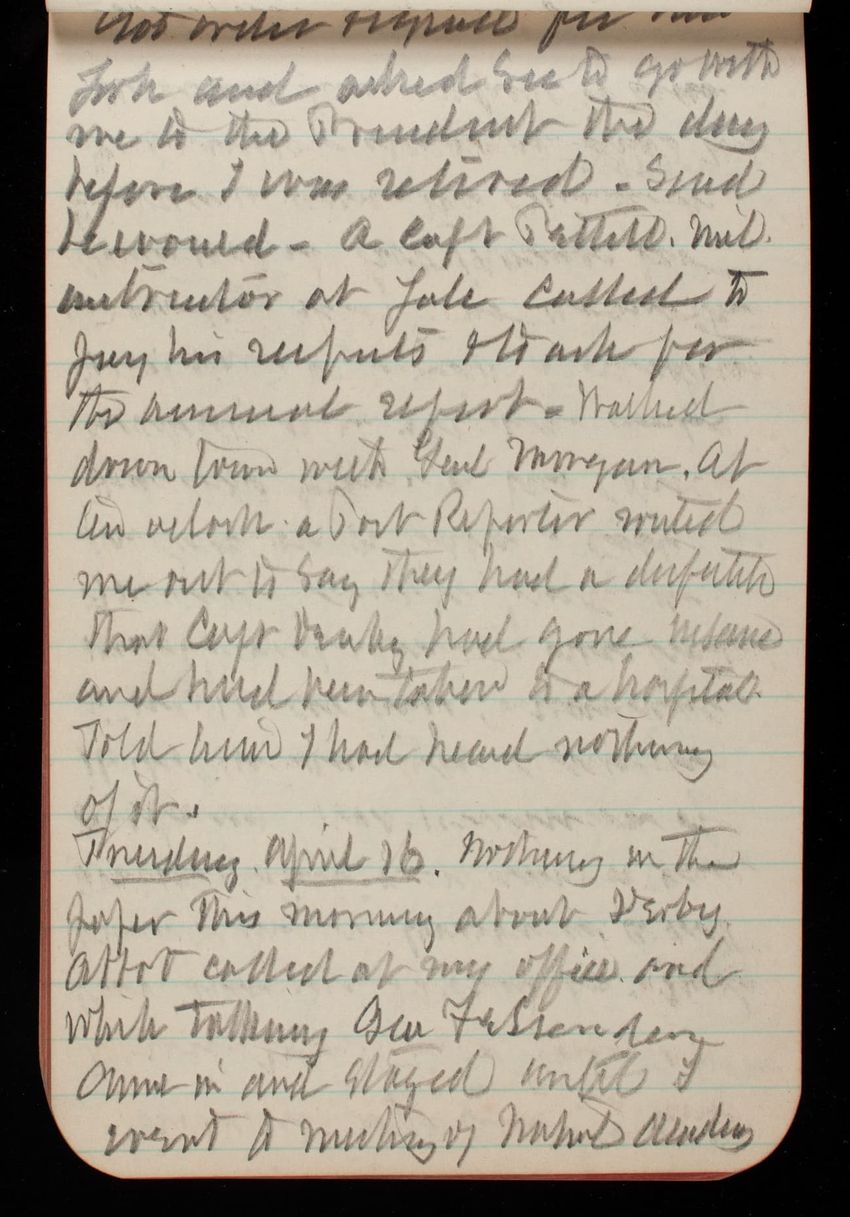 and asked Sec to go with
me to the President the day
before I was retired - Said
he would - A Capt Mil.
instructor at Yale called to
pay his respects & to ask for
the annual report - Walked
down town with Genl Morgan. At
ten oclock a Post Reporter routed
me out to say they had a dispatch
that Capt had gone insane
and had been taken to a hospital
Told him I had heard nothing
of it.
Tuesday April 16. Nothing in the
paper this morning about Derby
Abbot called at my office and
while talking Geo Fessenden
came in and stayed until I
went to meeting of Academy